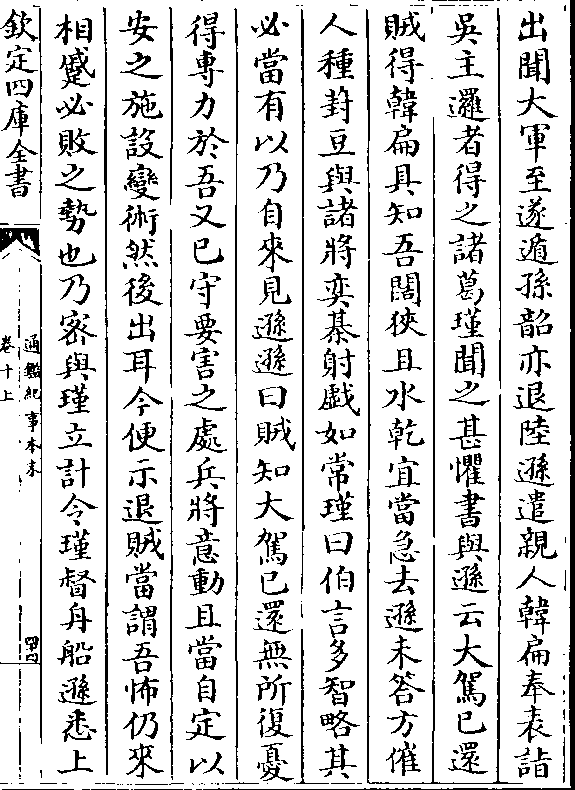 出聞大軍至遂遁孫韶亦退陸遜遣親人韓扁奉表詣
吳主邏者得之諸葛瑾聞之甚懼書與遜云大駕已還
賊得韓扁具知吾闊狹且水乾宜當急去遜未答方催
人種葑豆與諸將奕棊射戲如常瑾曰伯言多智略其
必當有以乃自來見遜遜曰賊知大駕已還無所復憂
得専力於吾又已守要害之處兵將意動且當自定以
安之施設變術然後出耳今便示退賊當謂吾怖仍來
相蹙必敗之勢也乃密與瑾立計令瑾督舟船遜悉上
欽定四庫全書
通鑑紀事本末
卷十上